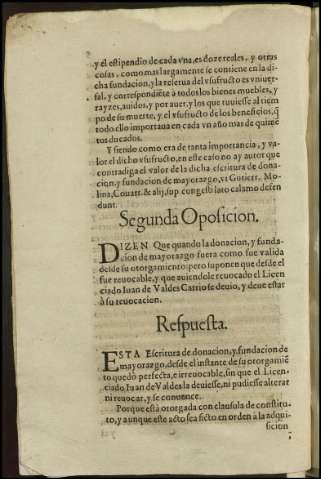 y el estipendio de cada vna, es doze reales, y otras
cosas, como mas largamente se contiene en la di-
cha fundacion, y la reserua del vsufructo es vniuer-
sal, y correspondiẽte à todos los bienes muebles, y
rayzes, auidos, y por auer, y los que tuuiesse al tiem
po de su muerte, y el vsufructo de los beneficios, q̃
todo ello importaua en cada vn año mas de quiniẽ
tos ducados.
Y siendo como era de tanta importancia, y va-
lor el dicho vsufructo, en este caso no ay autor que
contradiga el valor de la dicha escritura de dona-
cion, y fundacion de mayorazgo, vt Gutierr. Mo-
lina, Couarr. & alij, sup. congesti lato calamo defen
dunt.
Segunda Oposicion.
DIZEN Que quando la donacion, y funda-
cion de mayorazgo fuera como fue valida
desde su otorgamiento: pero suponen que desde el
fue reuocable, y que auiendole reuocado el Licen
ciado Iuan de Valdes Carrio se deuio, y deue estar
à su reuocacion.
Respuesta.
ESTA Escritura de donacion, y fundacion de
mayorazgo, desde el instante de su otorgamiẽ
to quedò perfecta, e irreuocable, sin que el Licen-
ciado Iuan de Valdes la deuiesse, ni pudiesse alterar
ni reuocar, y se conuence.
Porque està otorgada con clausula de constito-
to, y aunque este acto sea ficto en orden à la adqui
sicion